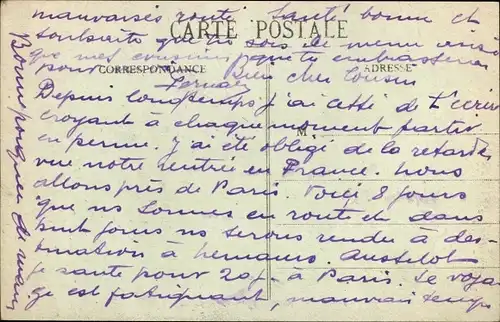 mauvaises routes Santé bonne et
souhaite que tu sois de meme ainsi
CARTE POSTALE
que mes cousins que te embrassera
CORRESPONDANCE
ADRESSE
pour
Bien cher Cousin
Depuis longtemps j'ai cessé de t'écrire
croyant à chaque moment partir
M
en perme. j'ai été obligé de la retarder
vue notre rentrée en France. Nous
allons près de Paris. Voici 8 jours
que ns sommes en route et dans
huit jours ns serons rendu à des-
tination à Aussitot
je saute pour 20j. à Paris. Le voya
ge est fatiguant, mauvais temps
Bonne poignée de mains